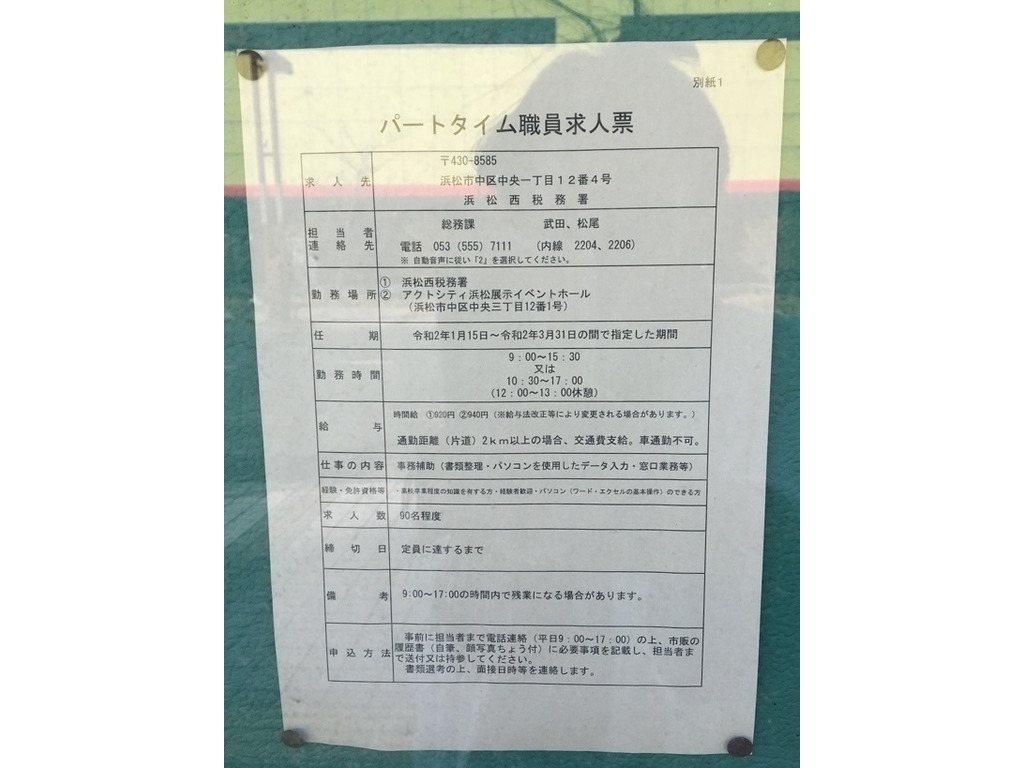 別紙１
パートタイム職員求人票
求人先
〒430-8585
浜松市中区中央一丁目１２番４号
浜松西税務署
担当者
連絡先
総務課　武田、松尾
電話　053（555）7111　（内線　2204、2206）
※ 自動音声に従い「2」を選択してください。
勤務場所
①　浜松西税務署
②　アクトシティ浜松展示イベントホール
（浜松市中区中央三丁目12番1号）
任期
令和2年1月15日～令和2年3月31日の間で指定した期間
勤務時間
9：00～15：30
又は
10：30～17：00
（12：00～13：00休憩）
給与
時間給　①920円 ②940円（※給与法改正等により変更される場合があります。）
通勤距離（片道）2ｋｍ以上の場合、交通費支給。車通勤不可。
仕事の内容
事務補助（書類整理・パソコンを使用したデータ入力・窓口業務等）
経験・免許資格等
・高校卒業程度の知識を有する方・経験者歓迎・パソコン（ワード・エクセルの基本操作）のできる方
求人数
90名程度
締切日
定員に達するまで
備考
9:00～17:00の時間内で残業になる場合があります。
申込方法
事前に担当者まで電話連絡（平日9：00～17：00）の上、市販の
履歴書（自筆、顔写真ちょう付）に必要事項を記載し、担当者ま
で送付又は持参してください。
書類選考の上、面接日時等を連絡します。